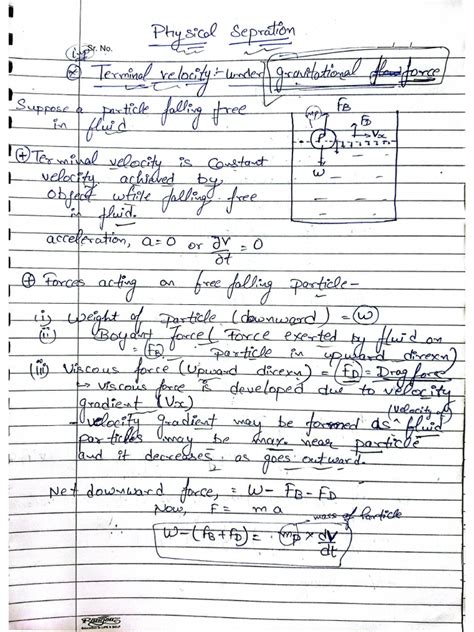 Physical Sepration
imp
Sr. No.
Terminal velocity:- under gravitational force
Suppose a particle falling free
in fluid
FB
FD
mp
P
Vx
W
Terminal velocity is constant
velocity achieved by
object while falling free
in fluid.
acceleration, a=0 or ∂V/∂t = 0
Forces acting on free falling particle-
(i) Weight of particle (downward) = (W)
(ii) Boyant force ( Force exerted by fluid on
= (FB) particle in upward direxn)
(iii) Viscous force (Upward direxn) = (FD) = Drag force
→ viscous force is developed due to velocity
gradient (Vx)
(velocity of)
- velocity gradient may be formed as ^ fluid
particles may be max. near particle
and it decreases as goes outward.
Net downward force, = W - FB - FD
Now, F = ma
mass of Particle
W-(FB+FD) = mp × dV/dt